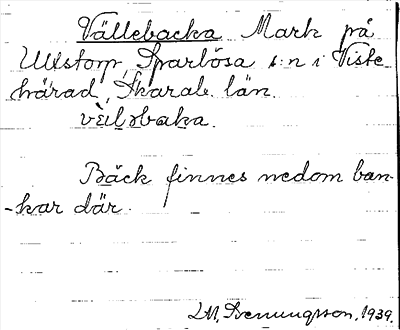 Vällebacka Mark på
Ulstorp, Sparlösa s:n i Viste
härad, Skarab. län.
vèilәbaka.
Bäck finnes nedom ban-
-kar där.
1939.